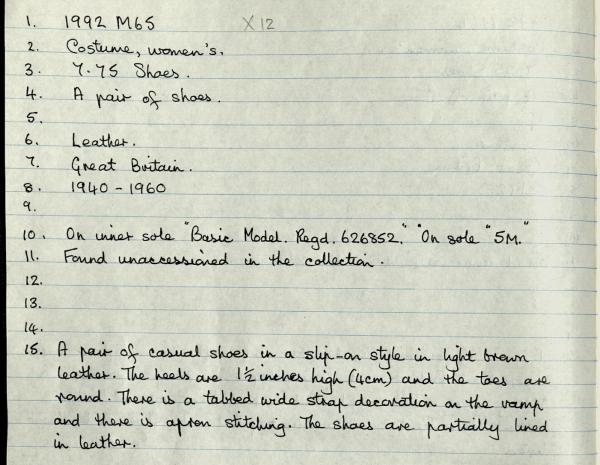 1. 1992 M65 X12
2. Costume, women's.
3. 7.75 Shoes.
4. A pair of shoes.
5.
6. Leather.
7. Great Britain.
8. 1940 - 1960
9.
10. On inner sole "Basic Model. Regd. 626852." On sole "5M."
11. Found unaccessioned in the collection.
12.
13.
14.
15. A pair of casual shoes in a slip-on style in light brown
leather. The heels are 1½ inches high (4cm) and the toes are
round. There is a tabbed wide strap decoration on the vamp
and there is apron stitching. The shoes are partially lined
in leather.